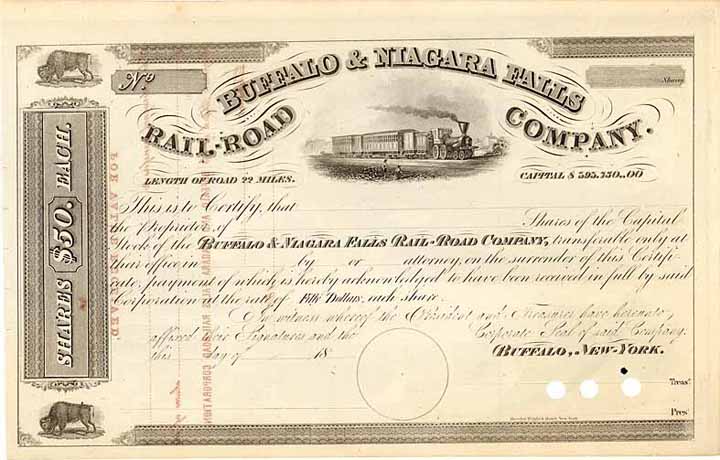 Nº
Shares
BUFFALO & NIAGARA FALLS
RAIL-ROAD COMPANY.
LENGTH OF ROAD 22 MILES.
CAPITAL $ 595.350..00
SHARES $50. EACH.
This is to Certify, that
the Proprietor of Shares of the Capital
Stock of the BUFFALO & NIAGARA FALLS RAIL-ROAD COMPANY, transferable only at
their office in by or attorney, on the surrender of this Certifi-
cate, payment of which is hereby acknowledged to have been received in full by said
Corporation at the rate of Fifty Dollars, each share.
In witness whereof the President and Treasurer have hereunto
affixed their Signatures and the Corporate Seal of said Company.
this day of 18
BUFFALO, NEW-YORK.
Treasr
Prest
RAILROAD CORPORATION